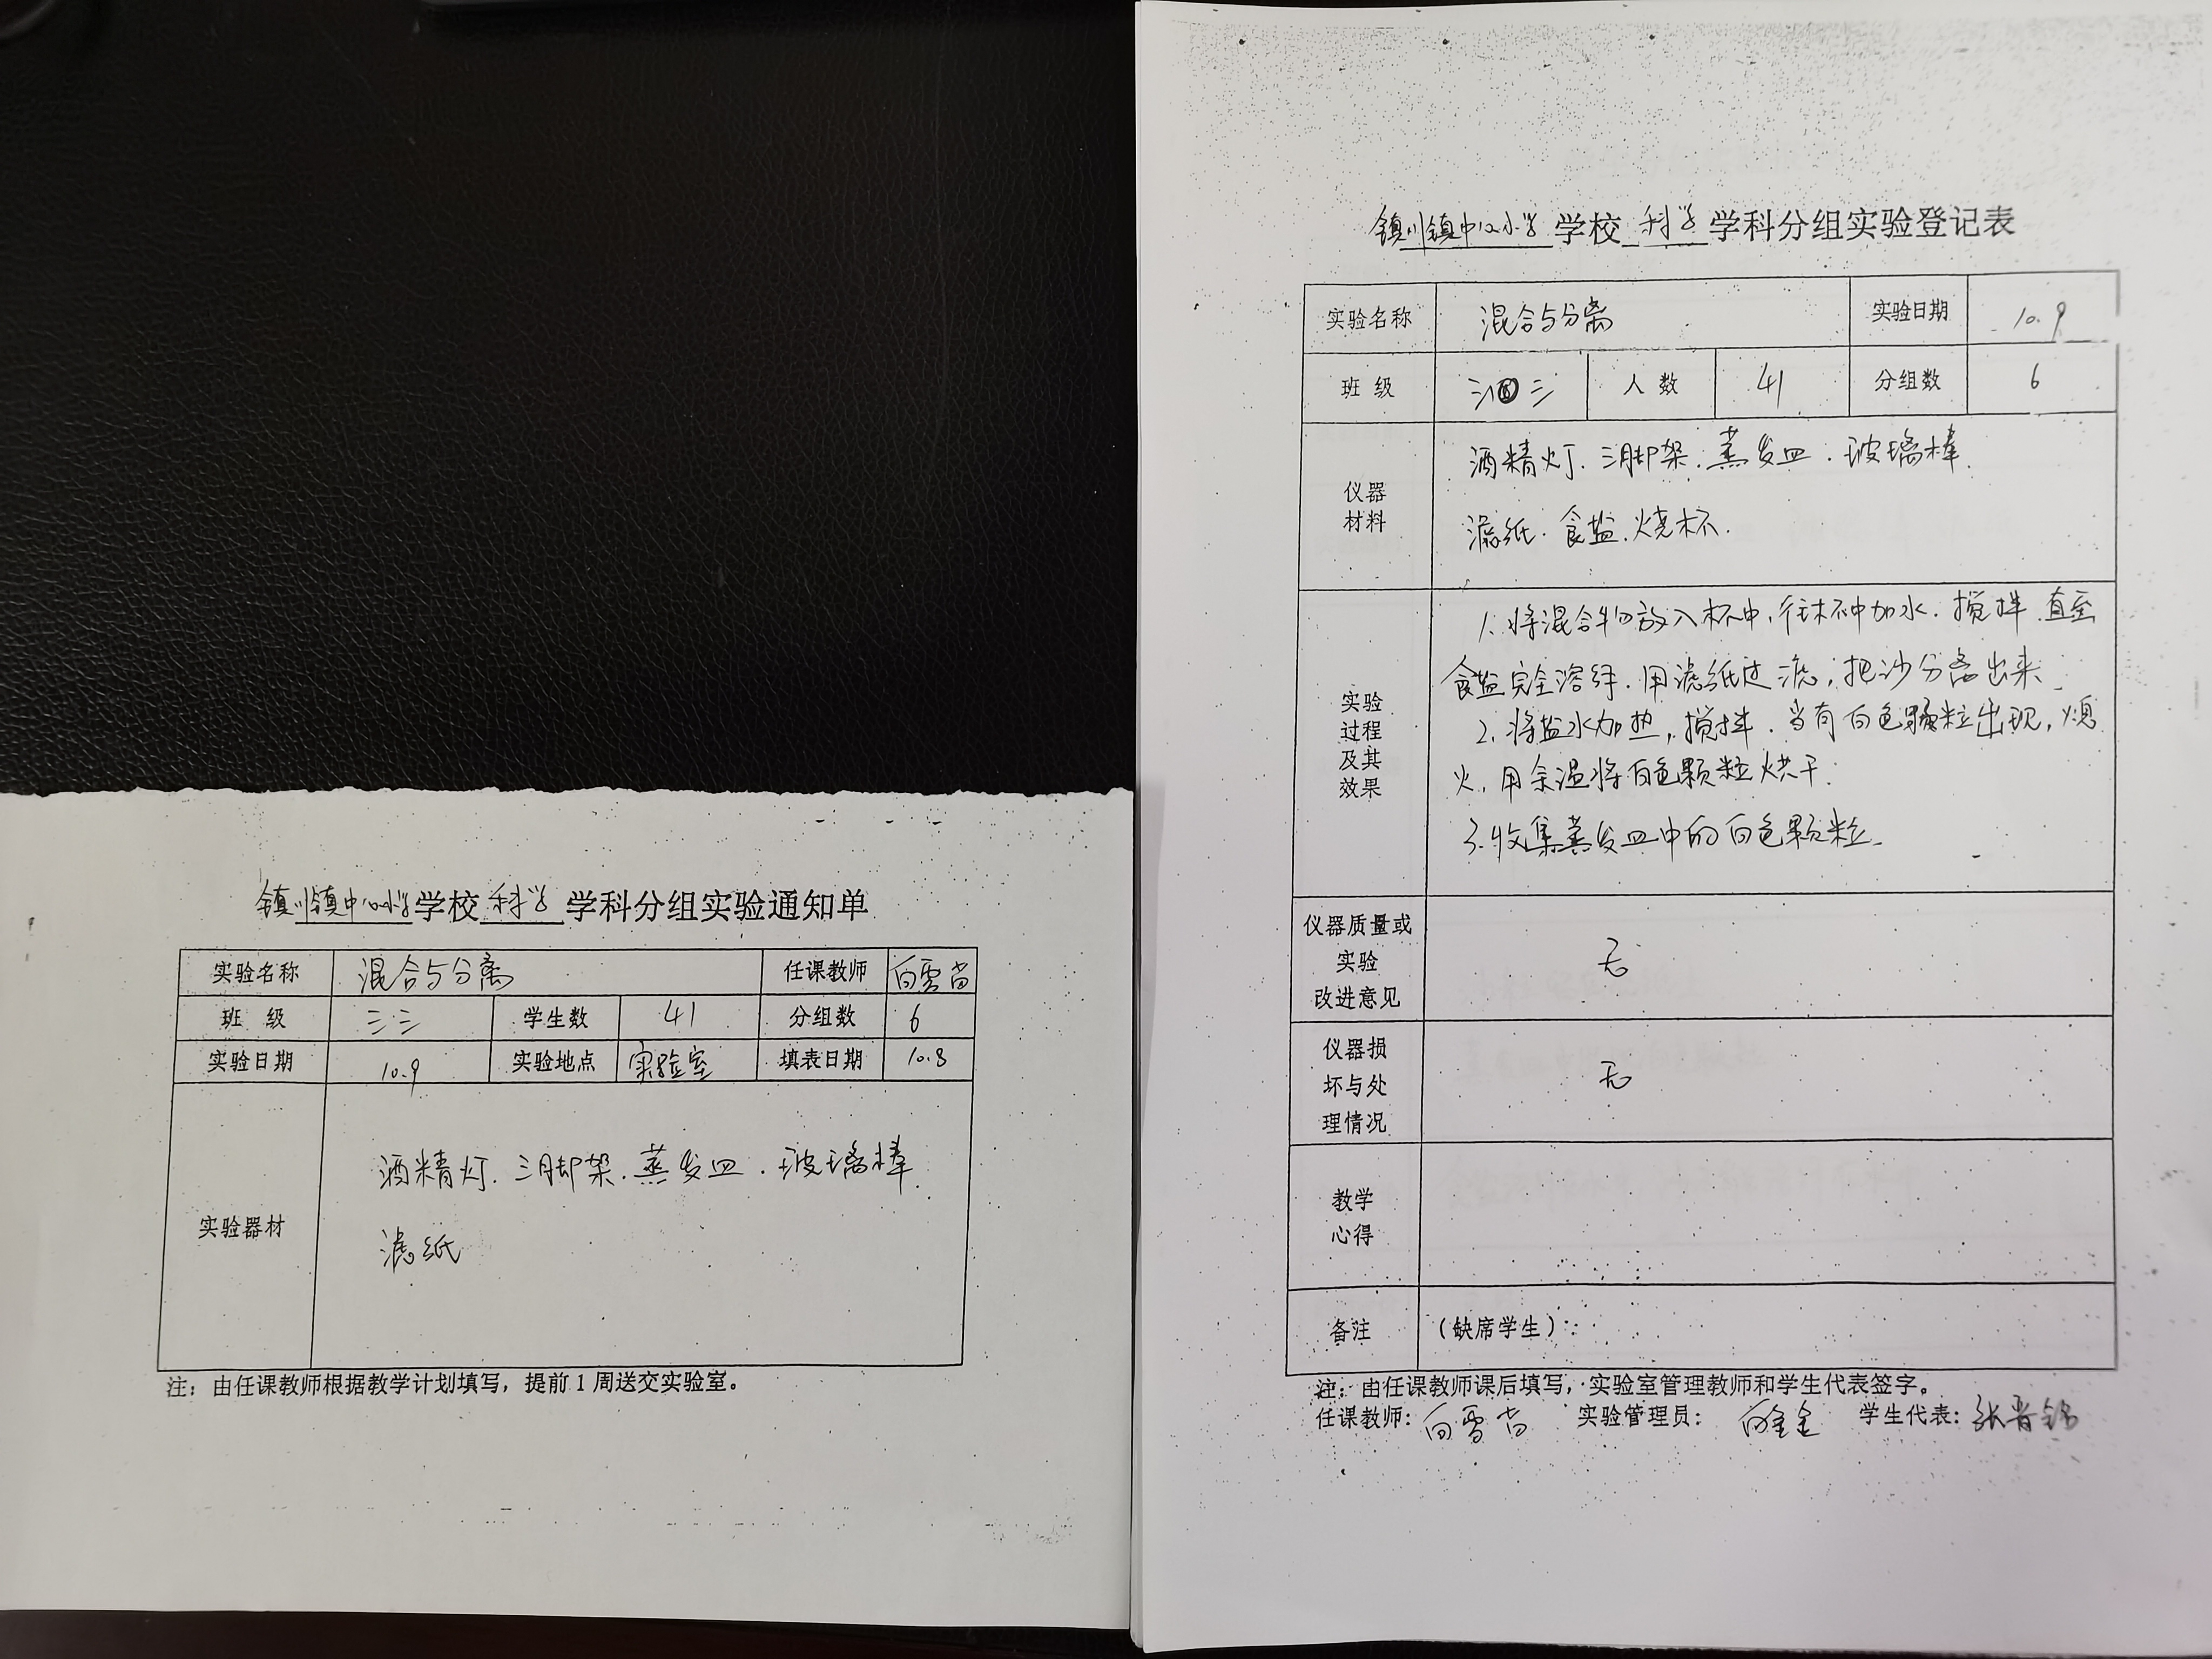 镇川镇中心小学学校科学学科分组实验通知单
实验名称 混合与分离 任课教师 白雪苗
班 级 三三 学生数 41 分组数 6
实验日期 10.9 实验地点 实验室 填表日期 10.8
实验器材
酒精灯.三脚架.蒸发皿.玻璃棒.
滤纸
注：由任课教师根据教学计划填写，提前1周送交实验室。
镇川镇中心小学学校科学学科分组实验登记表
实验名称 混合与分离 实验日期 10.9
班 级 三 三 人 数 41 分组数 6
仪器
材料
酒精灯.三脚架.蒸发皿.玻璃棒.
滤纸.食盐.烧杯.
实验
过程
及其
效果
1.将混合物放入杯中,往杯中加水.搅拌.直至
食盐完全溶解.用滤纸过滤,把沙分离出来.
2.将盐水加热,搅拌.当有白色颗粒出现,熄
火,用余温将白色颗粒烘干.
3.收集蒸发皿中的白色颗粒.
仪器质量或
实验
改进意见
无
仪器损
坏与处
理情况
无
教学
心得
备注 （缺席学生）：
注：由任课教师课后填写，实验室管理教师和学生代表签字。
任课教师：白雪苗 实验管理员： 白金金 学生代表：张